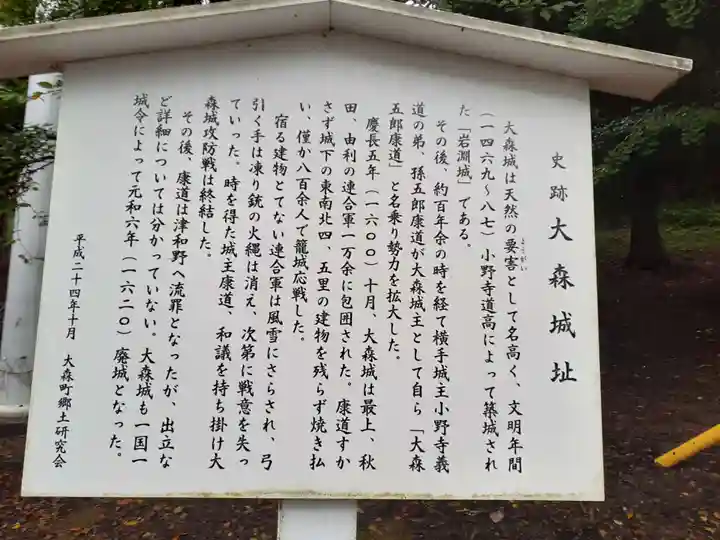 史跡 大森城址
大森城は天然の要害として名高く、文明年間
ようがい
(一四六九～八七)小野寺道高によって築城され
た「岩淵城」である。
その後、約百年余の時を経て横手城主小野寺義
道の弟、孫五郎康道が大森城主として自ら「大森
五郎康道」と名乗り勢力を拡大した。
慶長五年(一六〇〇)十月、大森城は最上、秋
田、由利の連合軍一万余に包囲された。康道すか
さず城下の東南北四、五里の建物を残らず焼き払
い、僅か八百余人で籠城応戦した。
宿る建物とてない連合軍は風雪にさらされ、弓
引く手は凍り銃の火縄は消え、次第に戦意を失っ
ていった。時を得た城主康道、和議を持ち掛け大
森城攻防戦は終結した。
その後、康道は津和野へ流罪となったが、出立な
ど詳細については分かっていない。大森城も一国一
城令によって元和六年(一六二〇)廃城となった。
平成二十四年十月 大森町郷土研究会